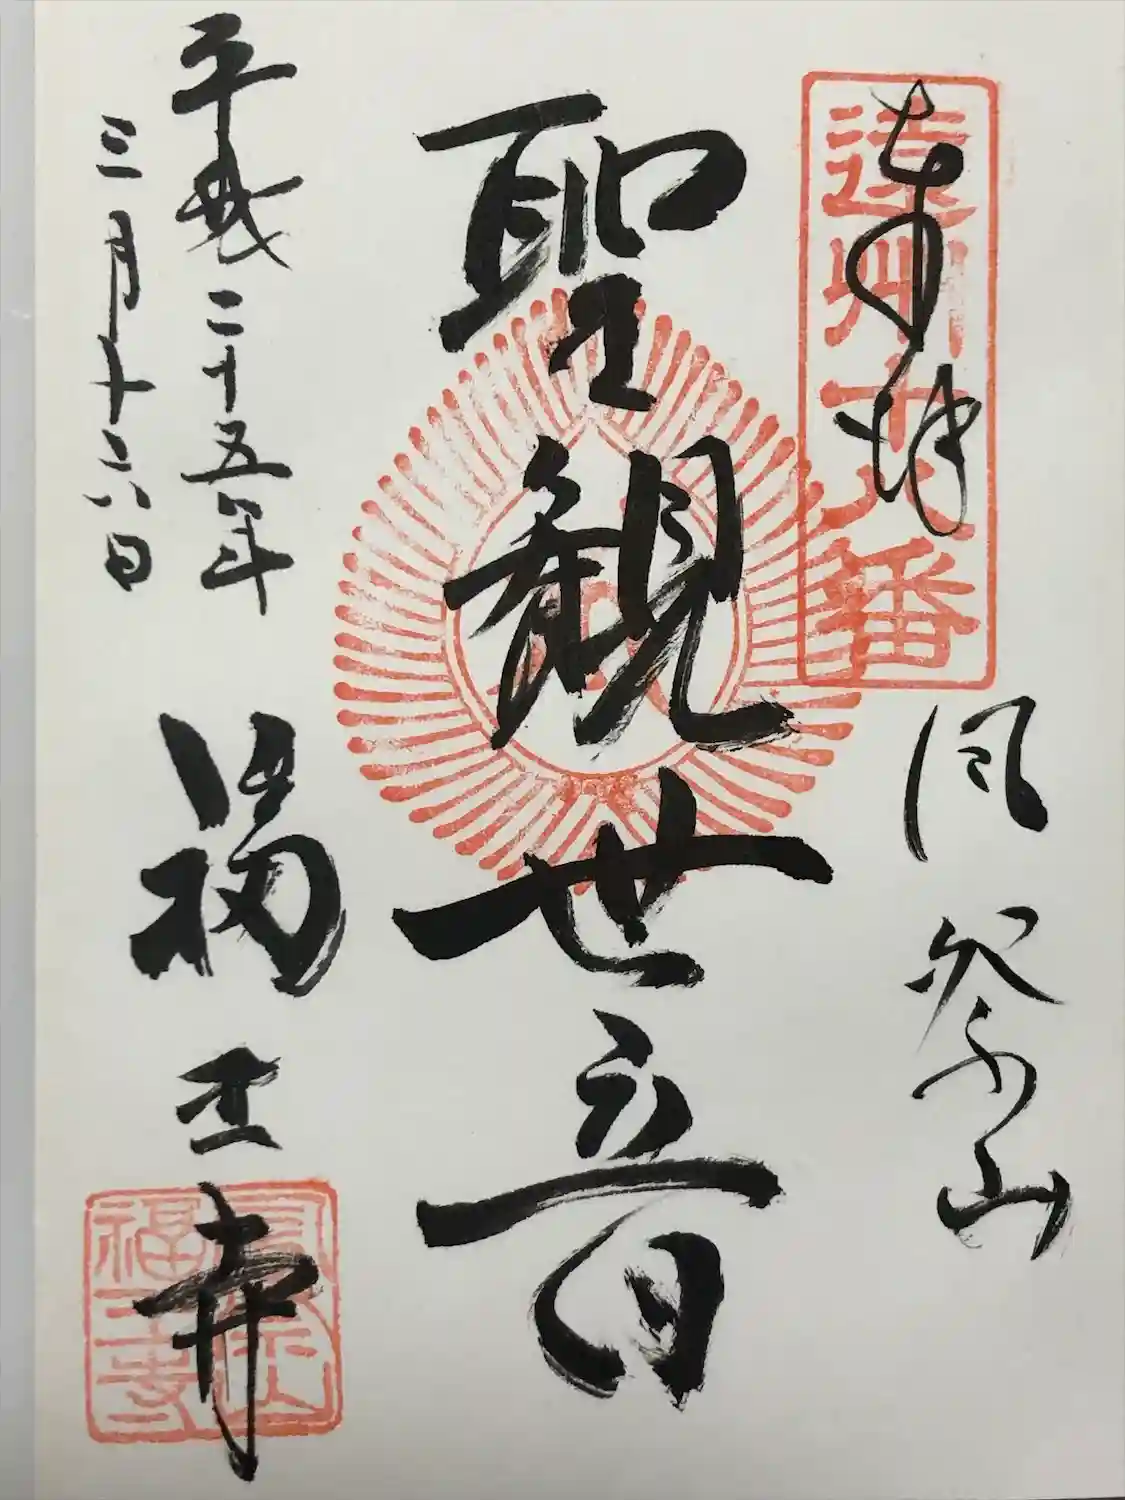 奉拝
遠州六番
風祭山
聖観世音
平成二十五年
三月十六日
福王寺
風祭山
福王寺